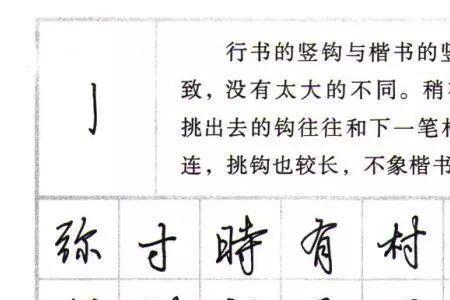 行书的竖钩与楷书的竖
致，没有太大的不同。稍
挑出去的钩往往和下一笔
连，挑钩也较长，不象楷书
弥寸時有村